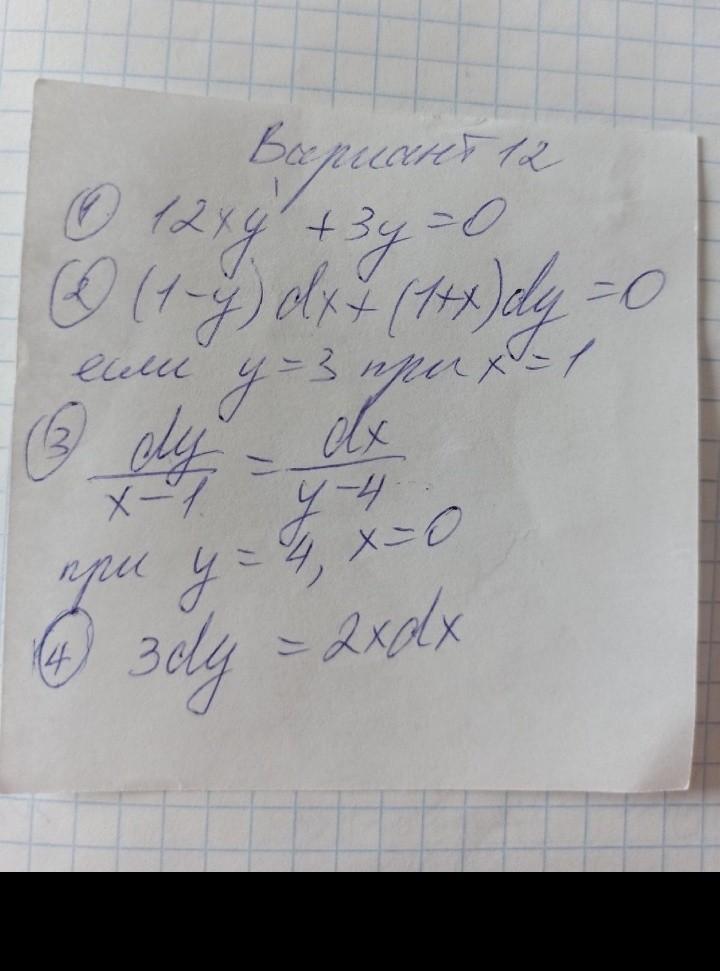 Вариант 12
① 12xy' + 3y = 0
② (1-y) dx + (1+x)dy = 0
если y = 3 при x = 1
③ dy/x-1 = dx/y-4
при y = 4, x = 0
④ 3dy = 2xdx